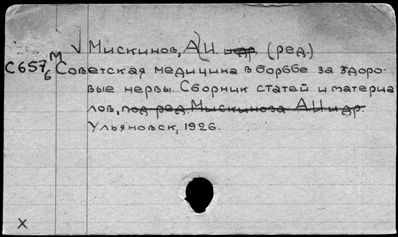 √ Мискинов, А.И. и др. (ред)
С657/6 М Советская медицина в борьбе за здоро-
вые нервы. Сборник статей и материа
лов, под ред. Мискинова А.И и др.
Ульяновск, 1926.
x